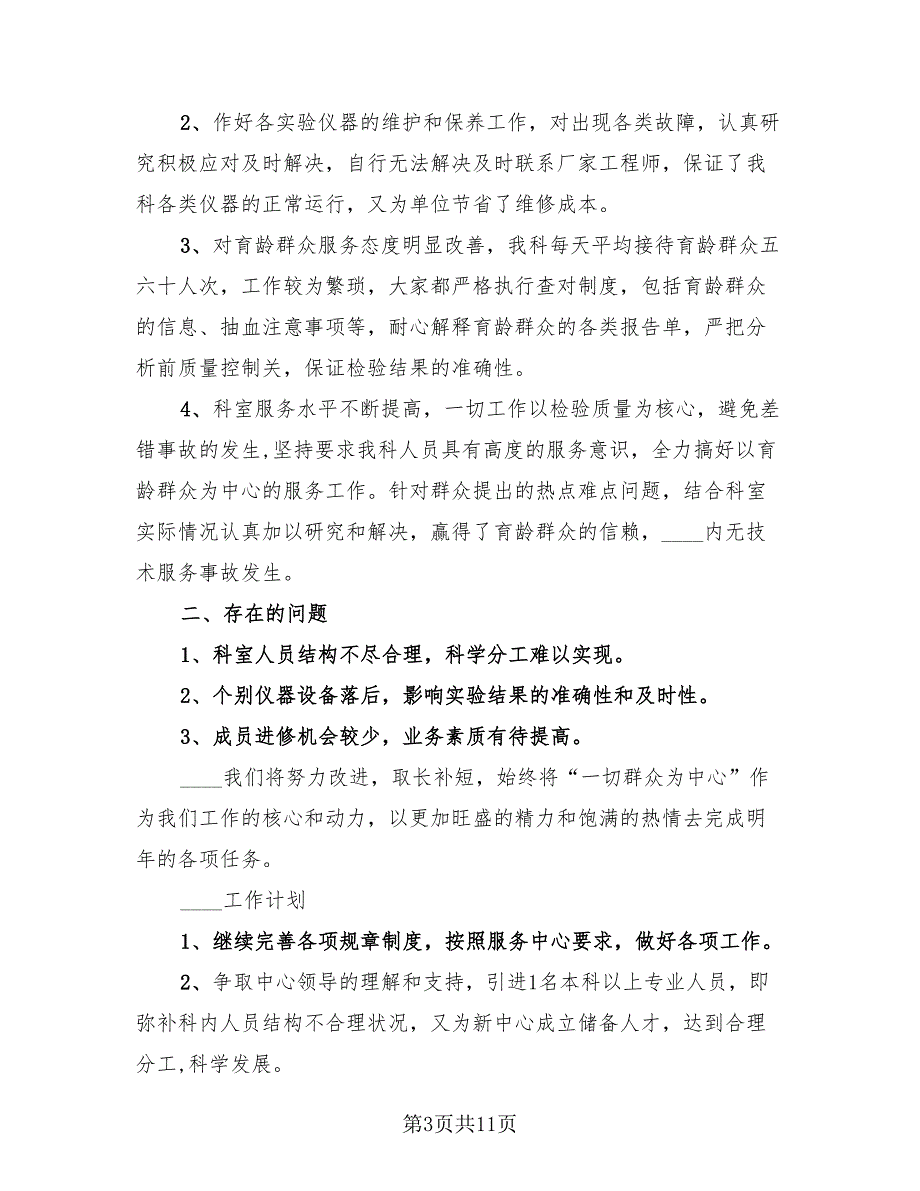 2、作好各实验仪器的维护和保养工作，对出现各类故障，认真研
究积极应对及时解决，自行无法解决及时联系厂家工程师，保证了我
科各类仪器的正常运行，又为单位节省了维修成本。
3、对育龄群众服务态度明显改善，我科每天平均接待育龄群众五
六十人次，工作较为繁琐，大家都严格执行查对制度，包括育龄群众
的信息、抽血注意事项等，耐心解释育龄群众的各类报告单，严把分
析前质量控制关，保证检验结果的准确性。
4、科室服务水平不断提高，一切工作以检验质量为核心，避免差
错事故的发生,坚持要求我科人员具有高度的服务意识，全力搞好以育
龄群众为中心的服务工作。针对群众提出的热点难点问题，结合科室
实际情况认真加以研究和解决，赢得了育龄群众的信赖，____内无技
术服务事故发生。
二、存在的问题
1、科室人员结构不尽合理，科学分工难以实现。
2、个别仪器设备落后，影响实验结果的准确性和及时性。
3、成员进修机会较少，业务素质有待提高。
____我们将努力改进，取长补短，始终将“一切群众为中心”作
为我们工作的核心和动力，以更加旺盛的精力和饱满的热情去完成明
年的各项任务。
____工作计划
1、继续完善各项规章制度，按照服务中心要求，做好各项工作。
2、争取中心领导的理解和支持，引进1名本科以上专业人员，即
弥补科内人员结构不合理状况，又为新中心成立储备人才，达到合理
分工,科学发展。
第3页共11页